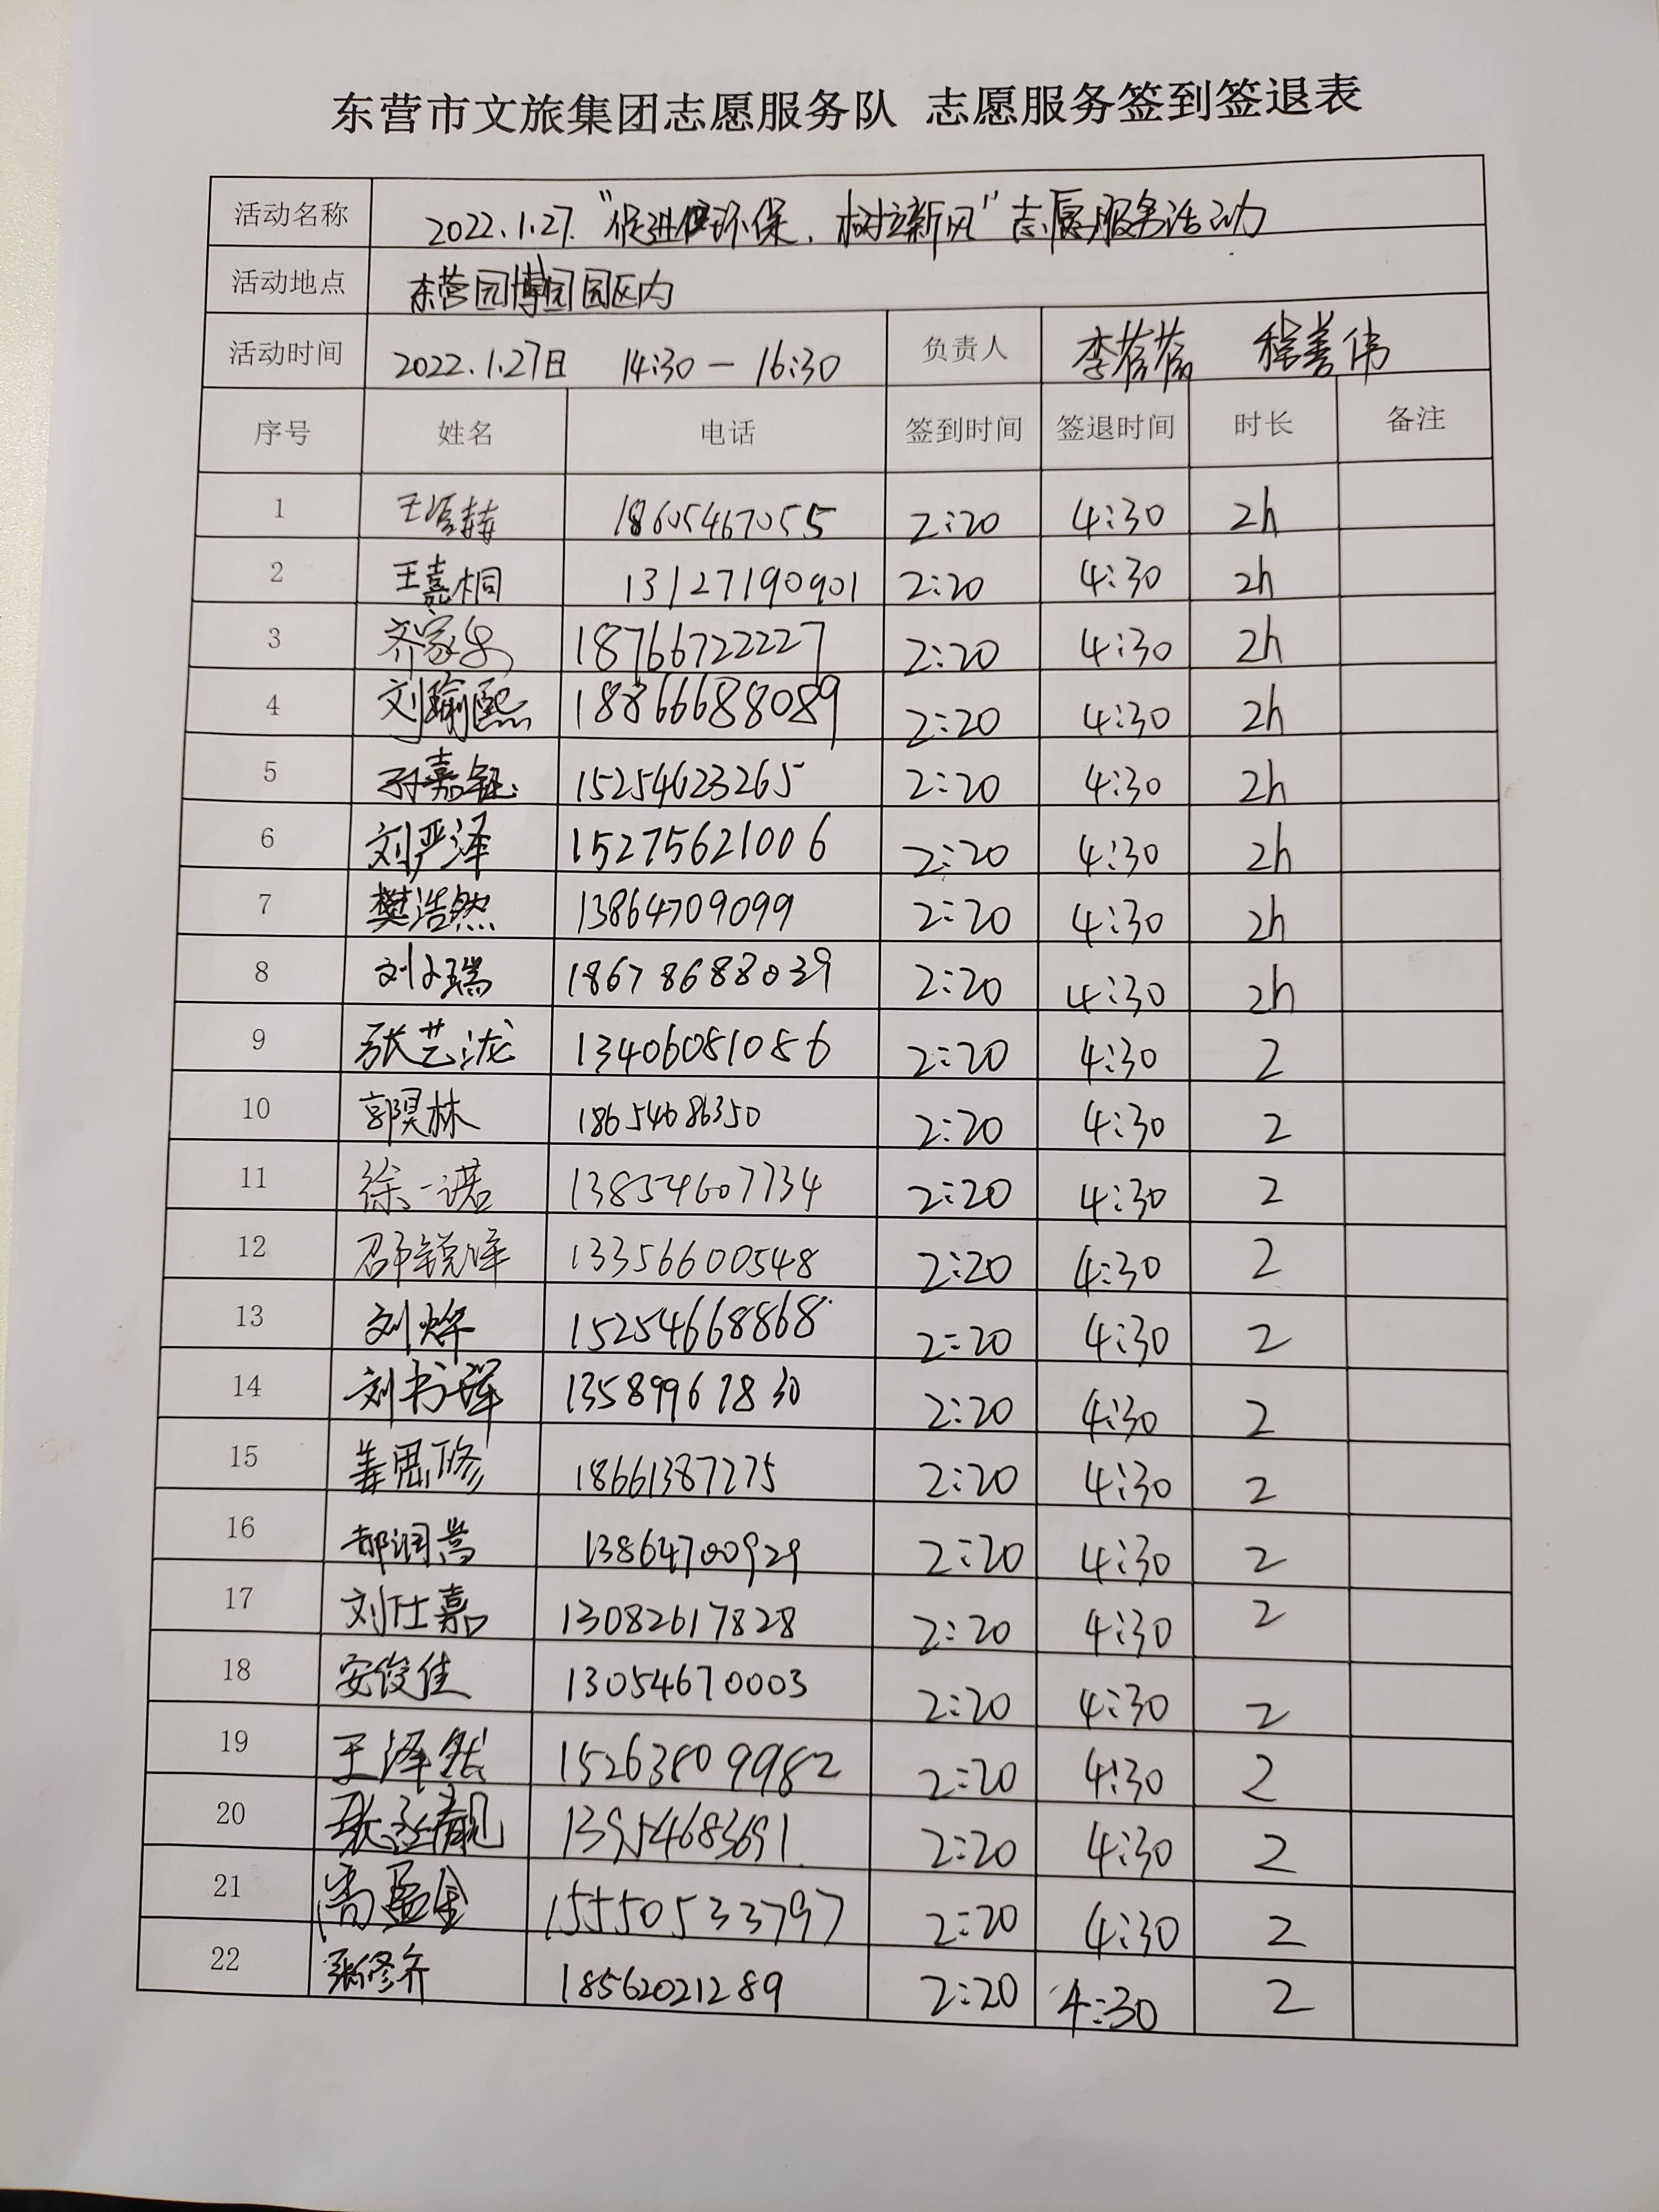 东营市文旅集团志愿服务队 志愿服务签到签退表
活动名称 2022.1.27."促进环保、树立新风"志愿服务活动
活动地点 东营园博园园区内
活动时间 2022.1.27日 14:30－16:30 负责人 李蓓蓓 程善伟
序号 姓名 电话 签到时间 签退时间 时长 备注
1 18605467055 2:20 4:30 2h
2 王嘉桐 13127190901 2:20 4:30 2h
3 齐家乐 18766722227 2:20 4:30 2h
4 刘瑜熙 18866688089 2:20 4:30 2h
5 孙嘉钰 15254623265 2:20 4:30 2h
6 刘严泽 15275621006 2:20 4:30 2h
7 樊浩然 13864709099 2:20 4:30 2h
8 18678688039 2:20 4:30 2h
9 张艺泷 13406081086 2:20 4:30 2
10 郭昊林 18654686350 2:20 4:30 2
11 徐一诺 13854607734 2:20 4:30 2
12 邵锐峰 13356600548 2:20 4:30 2
13 刘烨 15254668868 2:20 4:30 2
14 刘书瑾 13589967830 2:20 4:30 2
15 姜思修 18661387275 2:20 4:30 2
16 郝润嵩 13864700929 2:20 4:30 2
17 刘仕嘉 13082617828 2:20 4:30 2
18 安俊佳 13054670003 2:20 4:30 2
19 王泽然 15263809982 2:20 4:30 2
20 13954683691 2:20 4:30 2
21 15550533797 2:20 4:30 2
22 张修齐 18562021289 2:20 4:30 2